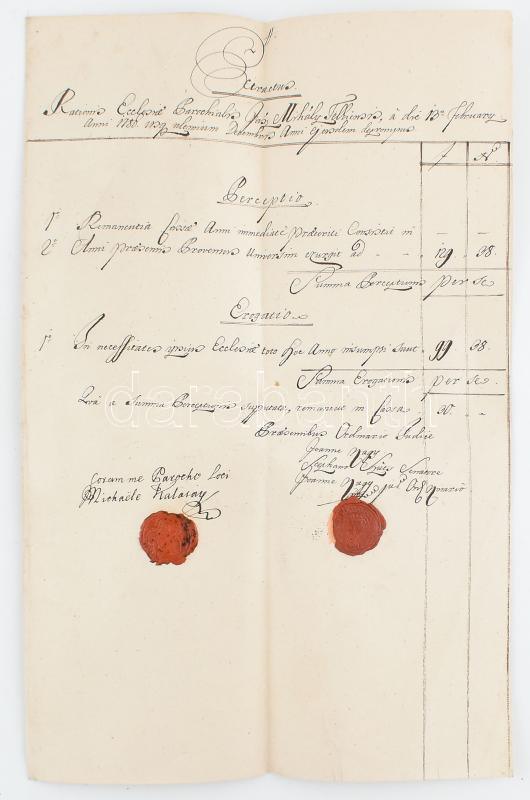 Extractus
Rationis Ecclesiae Parochialis Jász Mihály Telkiensis, a die 13a February
Anni 1780. usq ulteriorem Decembris Anni ejusdem
f xr
Perceptio
1o Remanentia Cassae Anni immediate praeteriti Consistit in - -
2o Anni praesentis Proventus Universim exurgit ad - - 129 38.
Summa Perceptionis per se
Erogatio
1o In necessitates ipsius Ecclesiae toto hoc Anno insumpti sunt 99 38.
Summa Erogationis per se.
a Summa Perceptionis remanent in Cassa 30. -
darabanth
Praesentibus Ordinario Judice
Joanne Nagy
Stephano Senatore
Joanne Nagy
coram me Parocho Loci
Michaele Kalatay